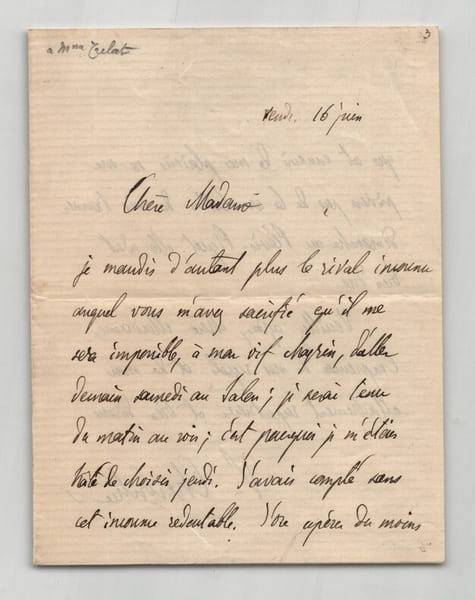 3
a Mme Trélat
vend. 16 juin
Chère Madame
je maudis d'autant plus le rival inconnu
auquel vous m'avez sacrifié qu'il me
sera impossible, à mon vif chagrin, d'aller
demain samedi au Salon ; je serai tenu
du matin au soir ; c'est pourquoi je m'étais
hâté de choisir jeudi. J'avais compté sans
cet inconnu redoutable. J'ose espérer du moins